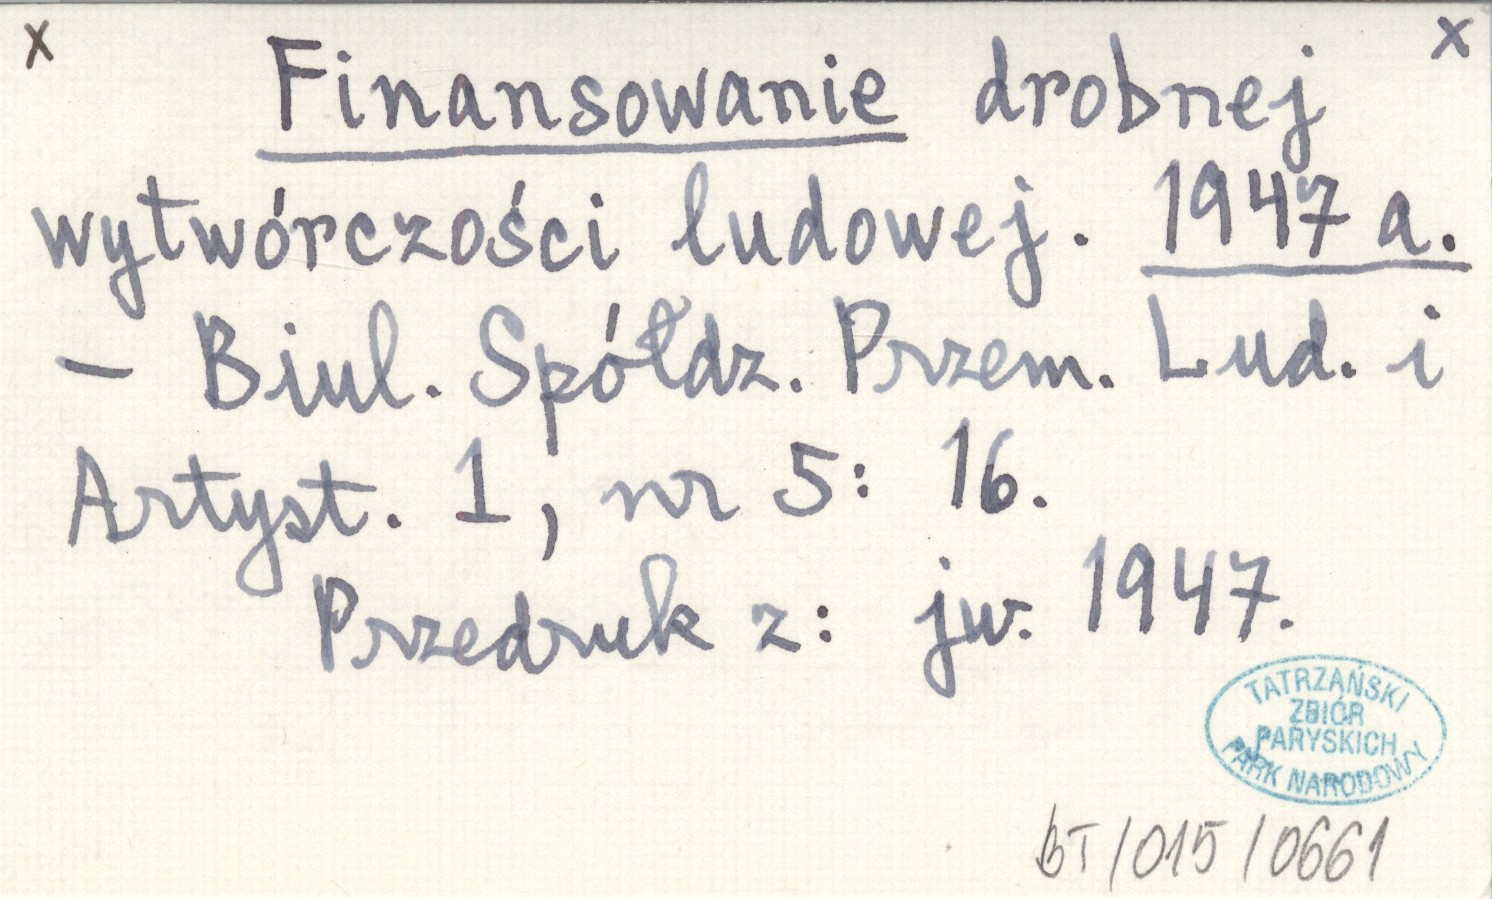 x x
Finansowanie drobnej
wytwórczości ludowej. 1947 a.
- Biul. Spółdz. Przem. Lud. i
Artyst. 1, nr 5: 16.
Przedruk z: jw. 1947.
TATRZAŃSKI
ZBIÓR
PARYSKICH
PARK NARODOWY
BT/015/0661